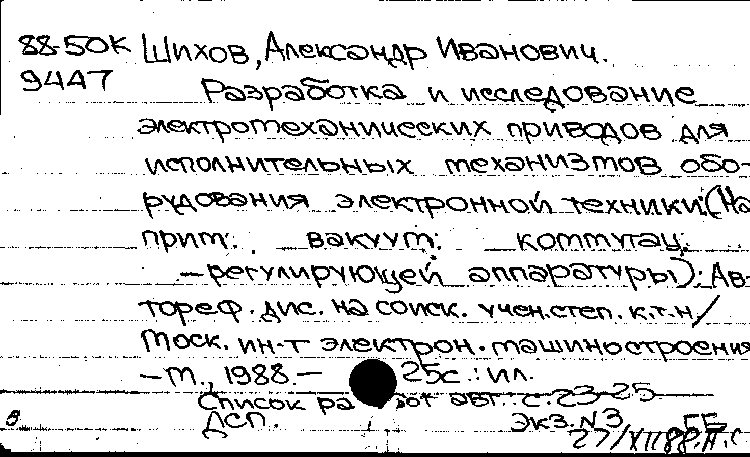 88-50К Шихов, Александр Иванович.
9447
Разработка и исследование
электромеханических приводов для
исполнительных механизмов обо-
рудования электронной техники: (На
прим. вакуум. коммутац.
-регулирующей аппаратуры): Ав-
тореф. дис. на соиск. учен. степ. к.т.н/
Моск. ин-т электрон. машиностроения
— М., 1988. — 25с.: ил.
Список работ авт.: с. 23-25
ДСП. Экз. N3 ГБ
в 27/XII88. П. С